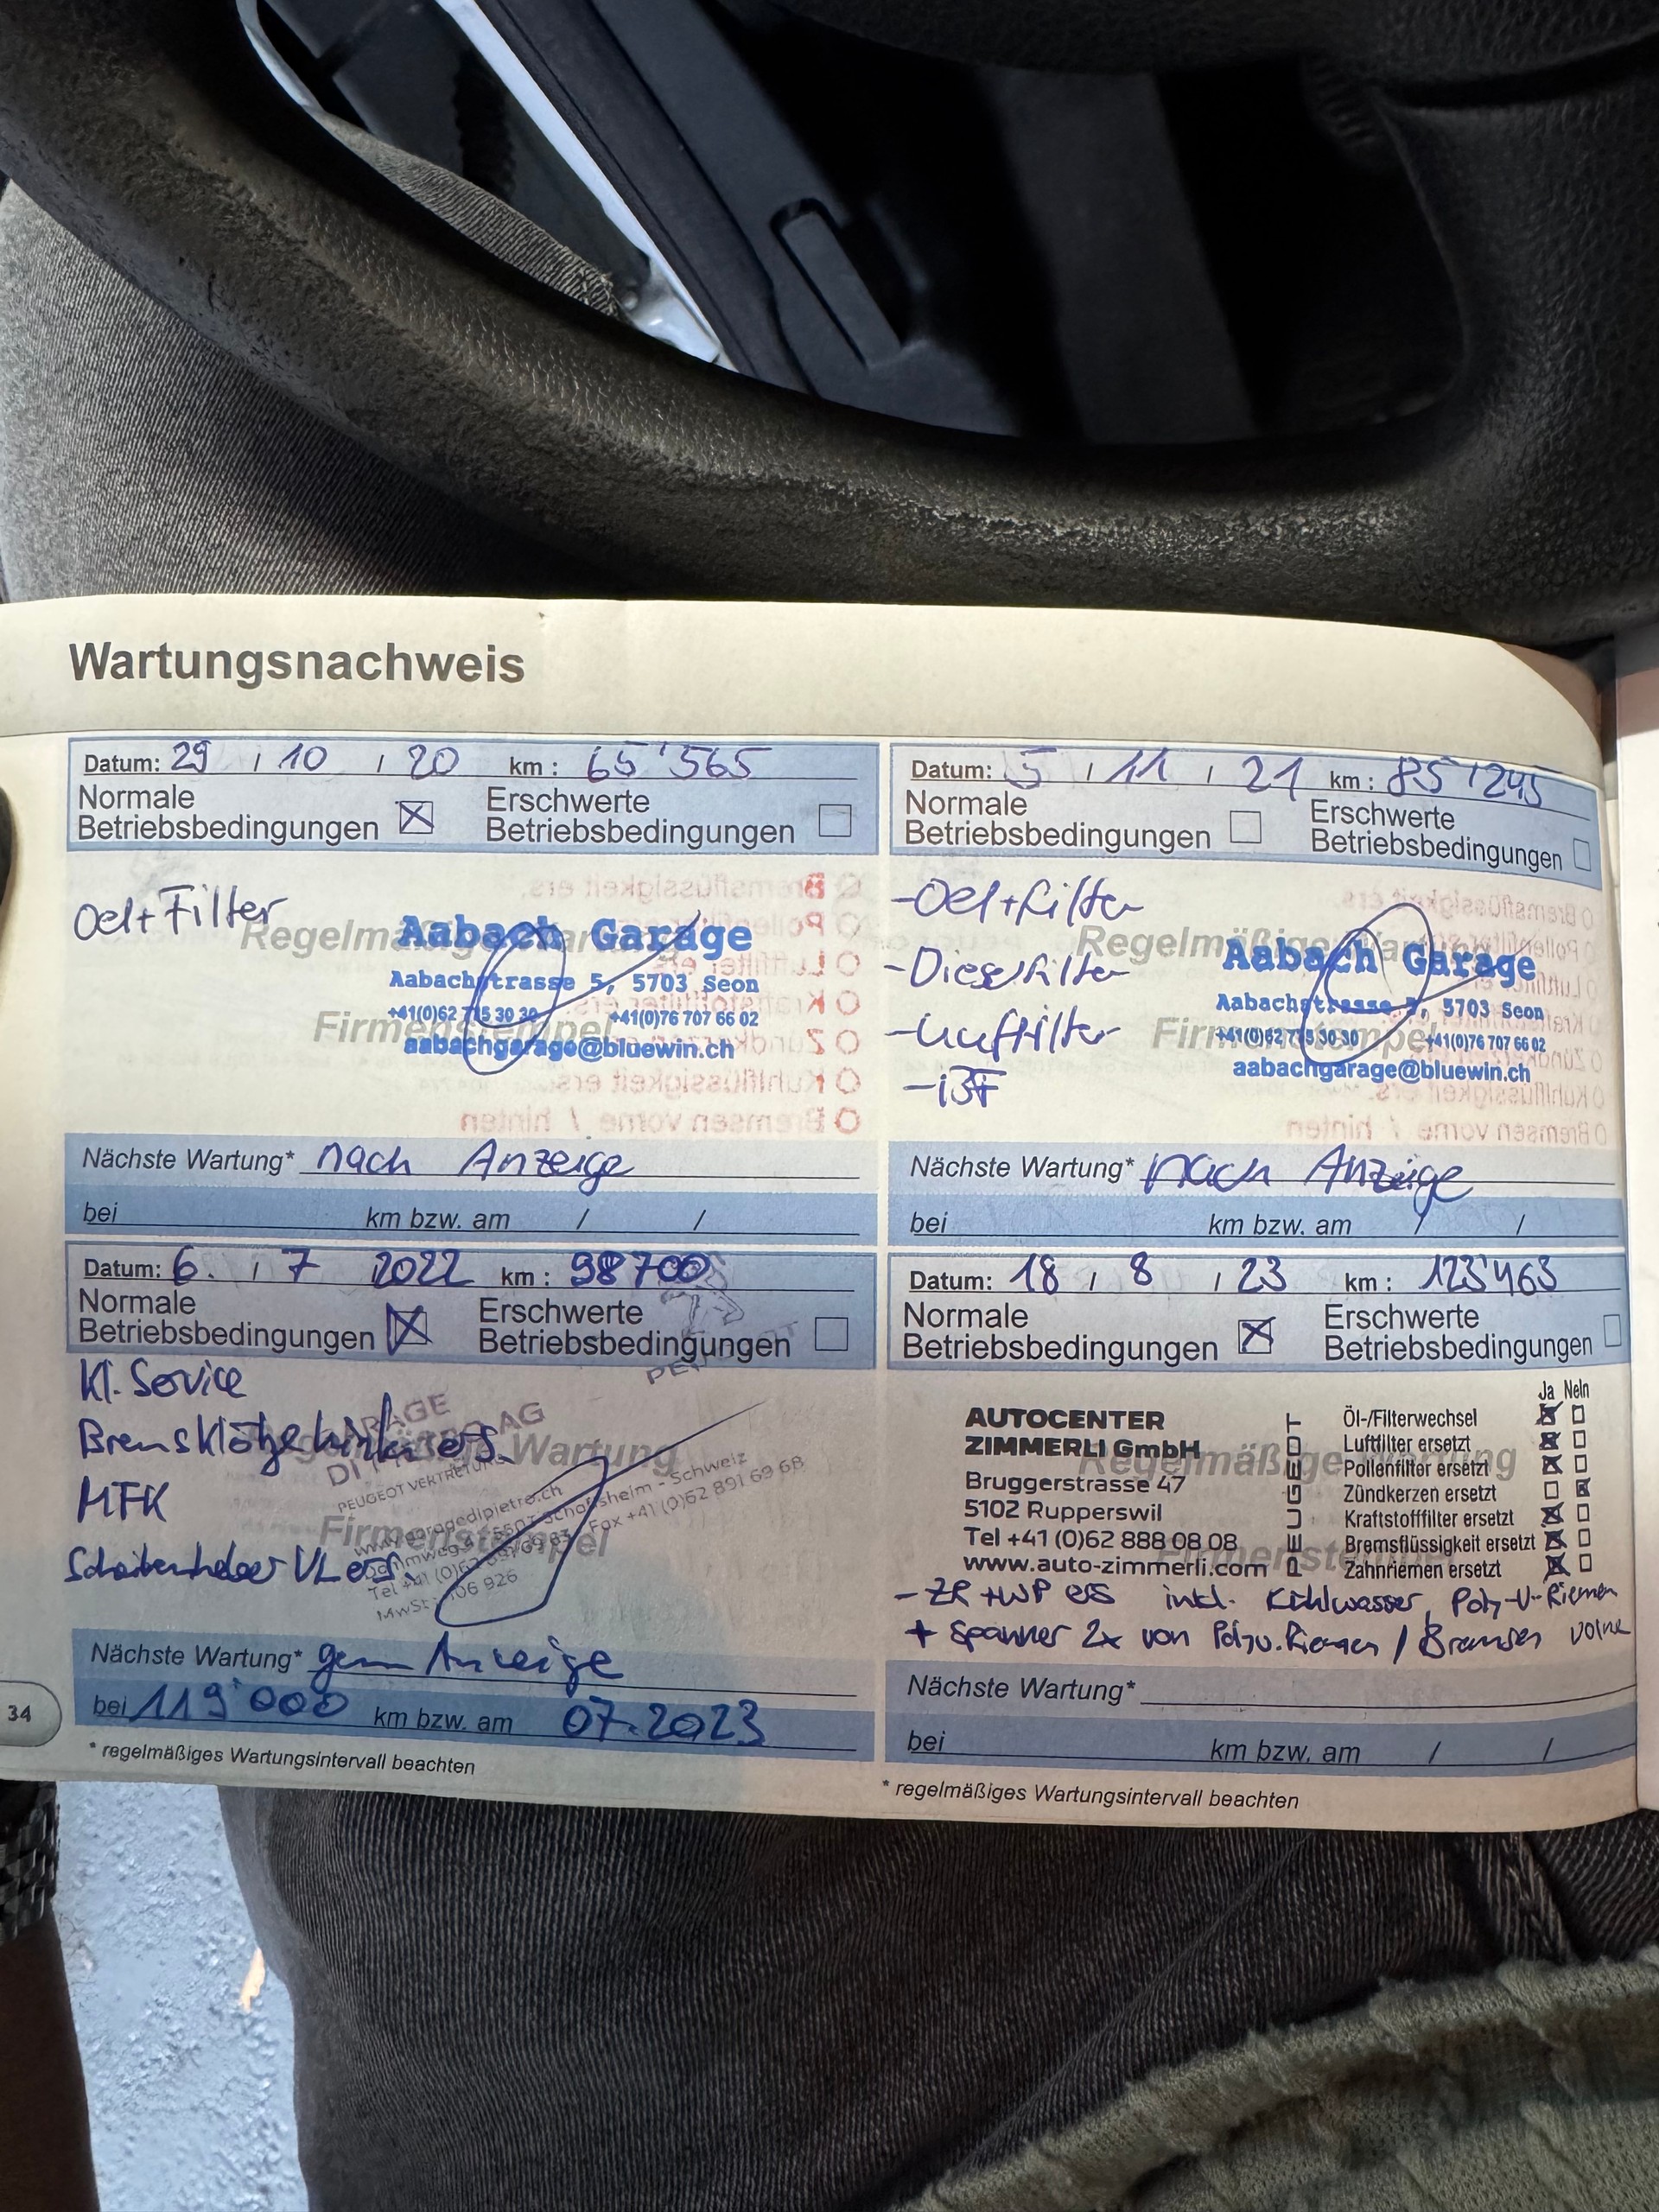 Wartungsnachweis
Datum: 29 / 10 / 20 km : 65'565
Normale Betriebsbedingungen ☒ Erschwerte Betriebsbedingungen ☐
Oel+Filter
Regelmäßige Wartung
Aabach Garage
Aabachstrasse 5, 5703 Seon
+41(0)62 775 30 30 +41(0)76 707 66 02
Firmenstempel
aabachgarage@bluewin.ch
Nächste Wartung* nach Anzeige
bei km bzw. am / /
Datum: 5 / 11 / 21 km : 85'245
Normale Betriebsbedingungen ☐ Erschwerte Betriebsbedingungen ☐
-Oel+Filter
-Dieselfilter
-Luftfilter
Regelmäßige Wartung
Aabach Garage
Aabachstrasse 5, 5703 Seon
+41(0)62 775 30 30 +41(0)76 707 66 02
Firmenstempel
aabachgarage@bluewin.ch
Nächste Wartung* nach Anzeige
bei km bzw. am / /
Datum: 6. / 7 2022 km : 98700
Normale Betriebsbedingungen ☒ Erschwerte Betriebsbedingungen ☐
Kl. Service
Bremsklötze hinten ers.
MFK
VL ers.
Regelmäßige Wartung
Firmenstempel
PEUGEOT
GARAGE
DI PIETRO AG
PEUGEOT VERTRETUNG
www.garagedipietro.ch
5503 Schafisheim - Schweiz
Fax +41 (0)62 891 69 68
Nächste Wartung* gem Anzeige
bei 119'000 km bzw. am 07.2023
* regelmäßiges Wartungsintervall beachten
Datum: 18 / 8 / 23 km : 123'463
Normale Betriebsbedingungen ☒ Erschwerte Betriebsbedingungen ☐
Regelmäßige Wartung
Firmenstempel
AUTOCENTER
ZIMMERLI GmbH
Bruggerstrasse 47
5102 Rupperswil
Tel +41 (0)62 888 08 08
www.auto-zimmerli.com
PEUGEOT
Ja Nein
Öl-/Filterwechsel ☒ ☐
Luftfilter ersetzt ☒ ☐
Pollenfilter ersetzt ☒ ☐
Zündkerzen ersetzt ☐ ☒
Kraftstofffilter ersetzt ☒ ☐
Bremsflüssigkeit ersetzt ☒ ☐
Zahnriemen ersetzt ☒ ☐
- ZR + WP ers inkl. Kühlwasser, Poly-V-Riemen
+ Spanner 2x von Polyv.Riemen / Bremsen vorne
Nächste Wartung*
bei km bzw. am / /
* regelmäßiges Wartungsintervall beachten
34